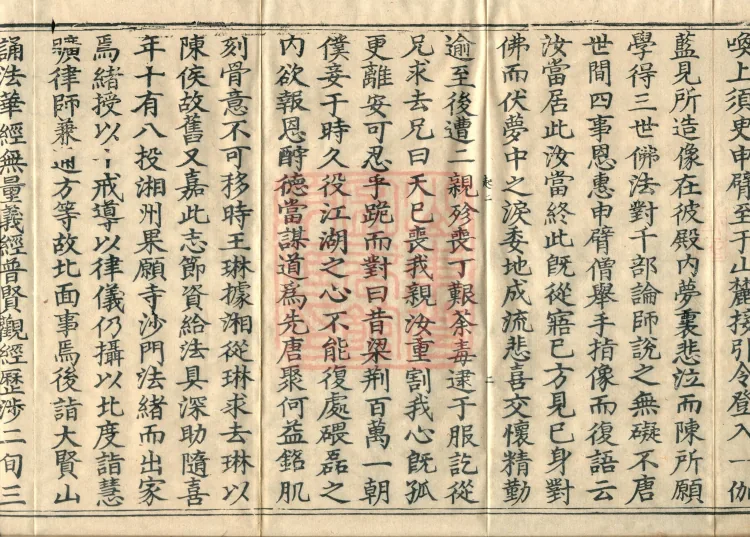 喚上須臾申臂至于山麓接引令登入一伽
藍見所造像在彼殿內夢裏悲泣而陳所願
學得三世佛法對千部論師說之無礙不唐
世間四事恩惠申臂僧舉手指像而復語云
汝當居此汝當終此既從寤已方見已身對
佛而伏夢中之淚委地成流悲喜交懷精勤
逾至後遭二親殄喪丁艱荼毒逮于服訖從
兄求去兄曰天已喪我親汝重割我心既孤
更離安可忍乎跪而對曰昔梁荆百萬一朝
僕妾于時久役江湖之心不能復處碨磊之
內欲報恩酧德當謀道爲先唐聚何益銘肌
刻骨意不可移時王琳據湘從琳求去琳以
陳侯故舊又嘉此志節資給法具深助隨喜
年十有八投湘州果願寺沙門法緒而出家
焉緒授以十戒導以律儀仍攝以北度詣慧
曠律師兼通方等故北面事焉後詣大賢山
誦法華經無量義經普賢觀經歷涉二旬三